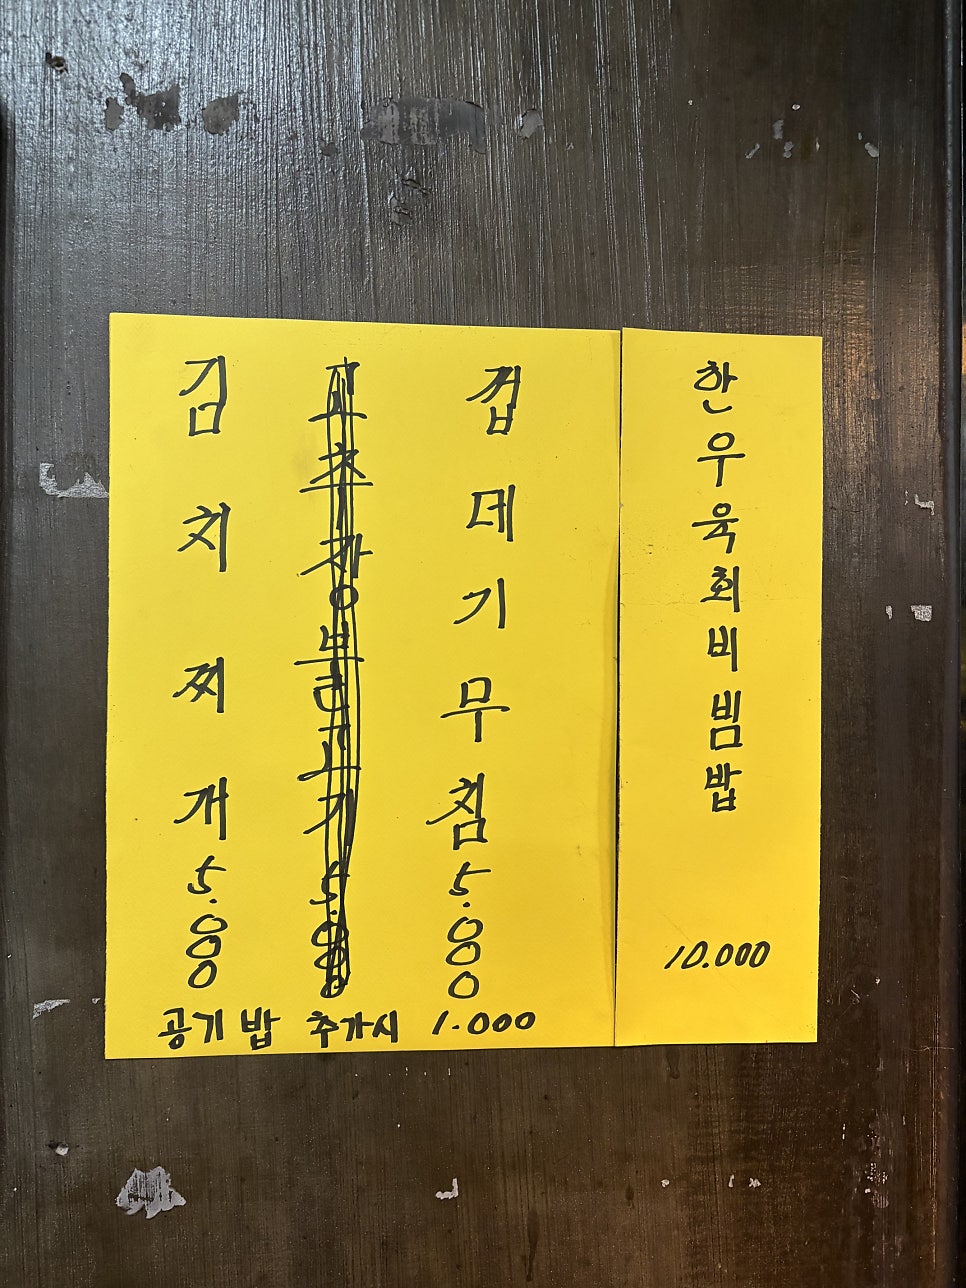 김치찌개 5.000
고추장불고기 5.000
껍데기무침 5.000
공기밥 추가시 1.000
한우육회비빔밥 10.000